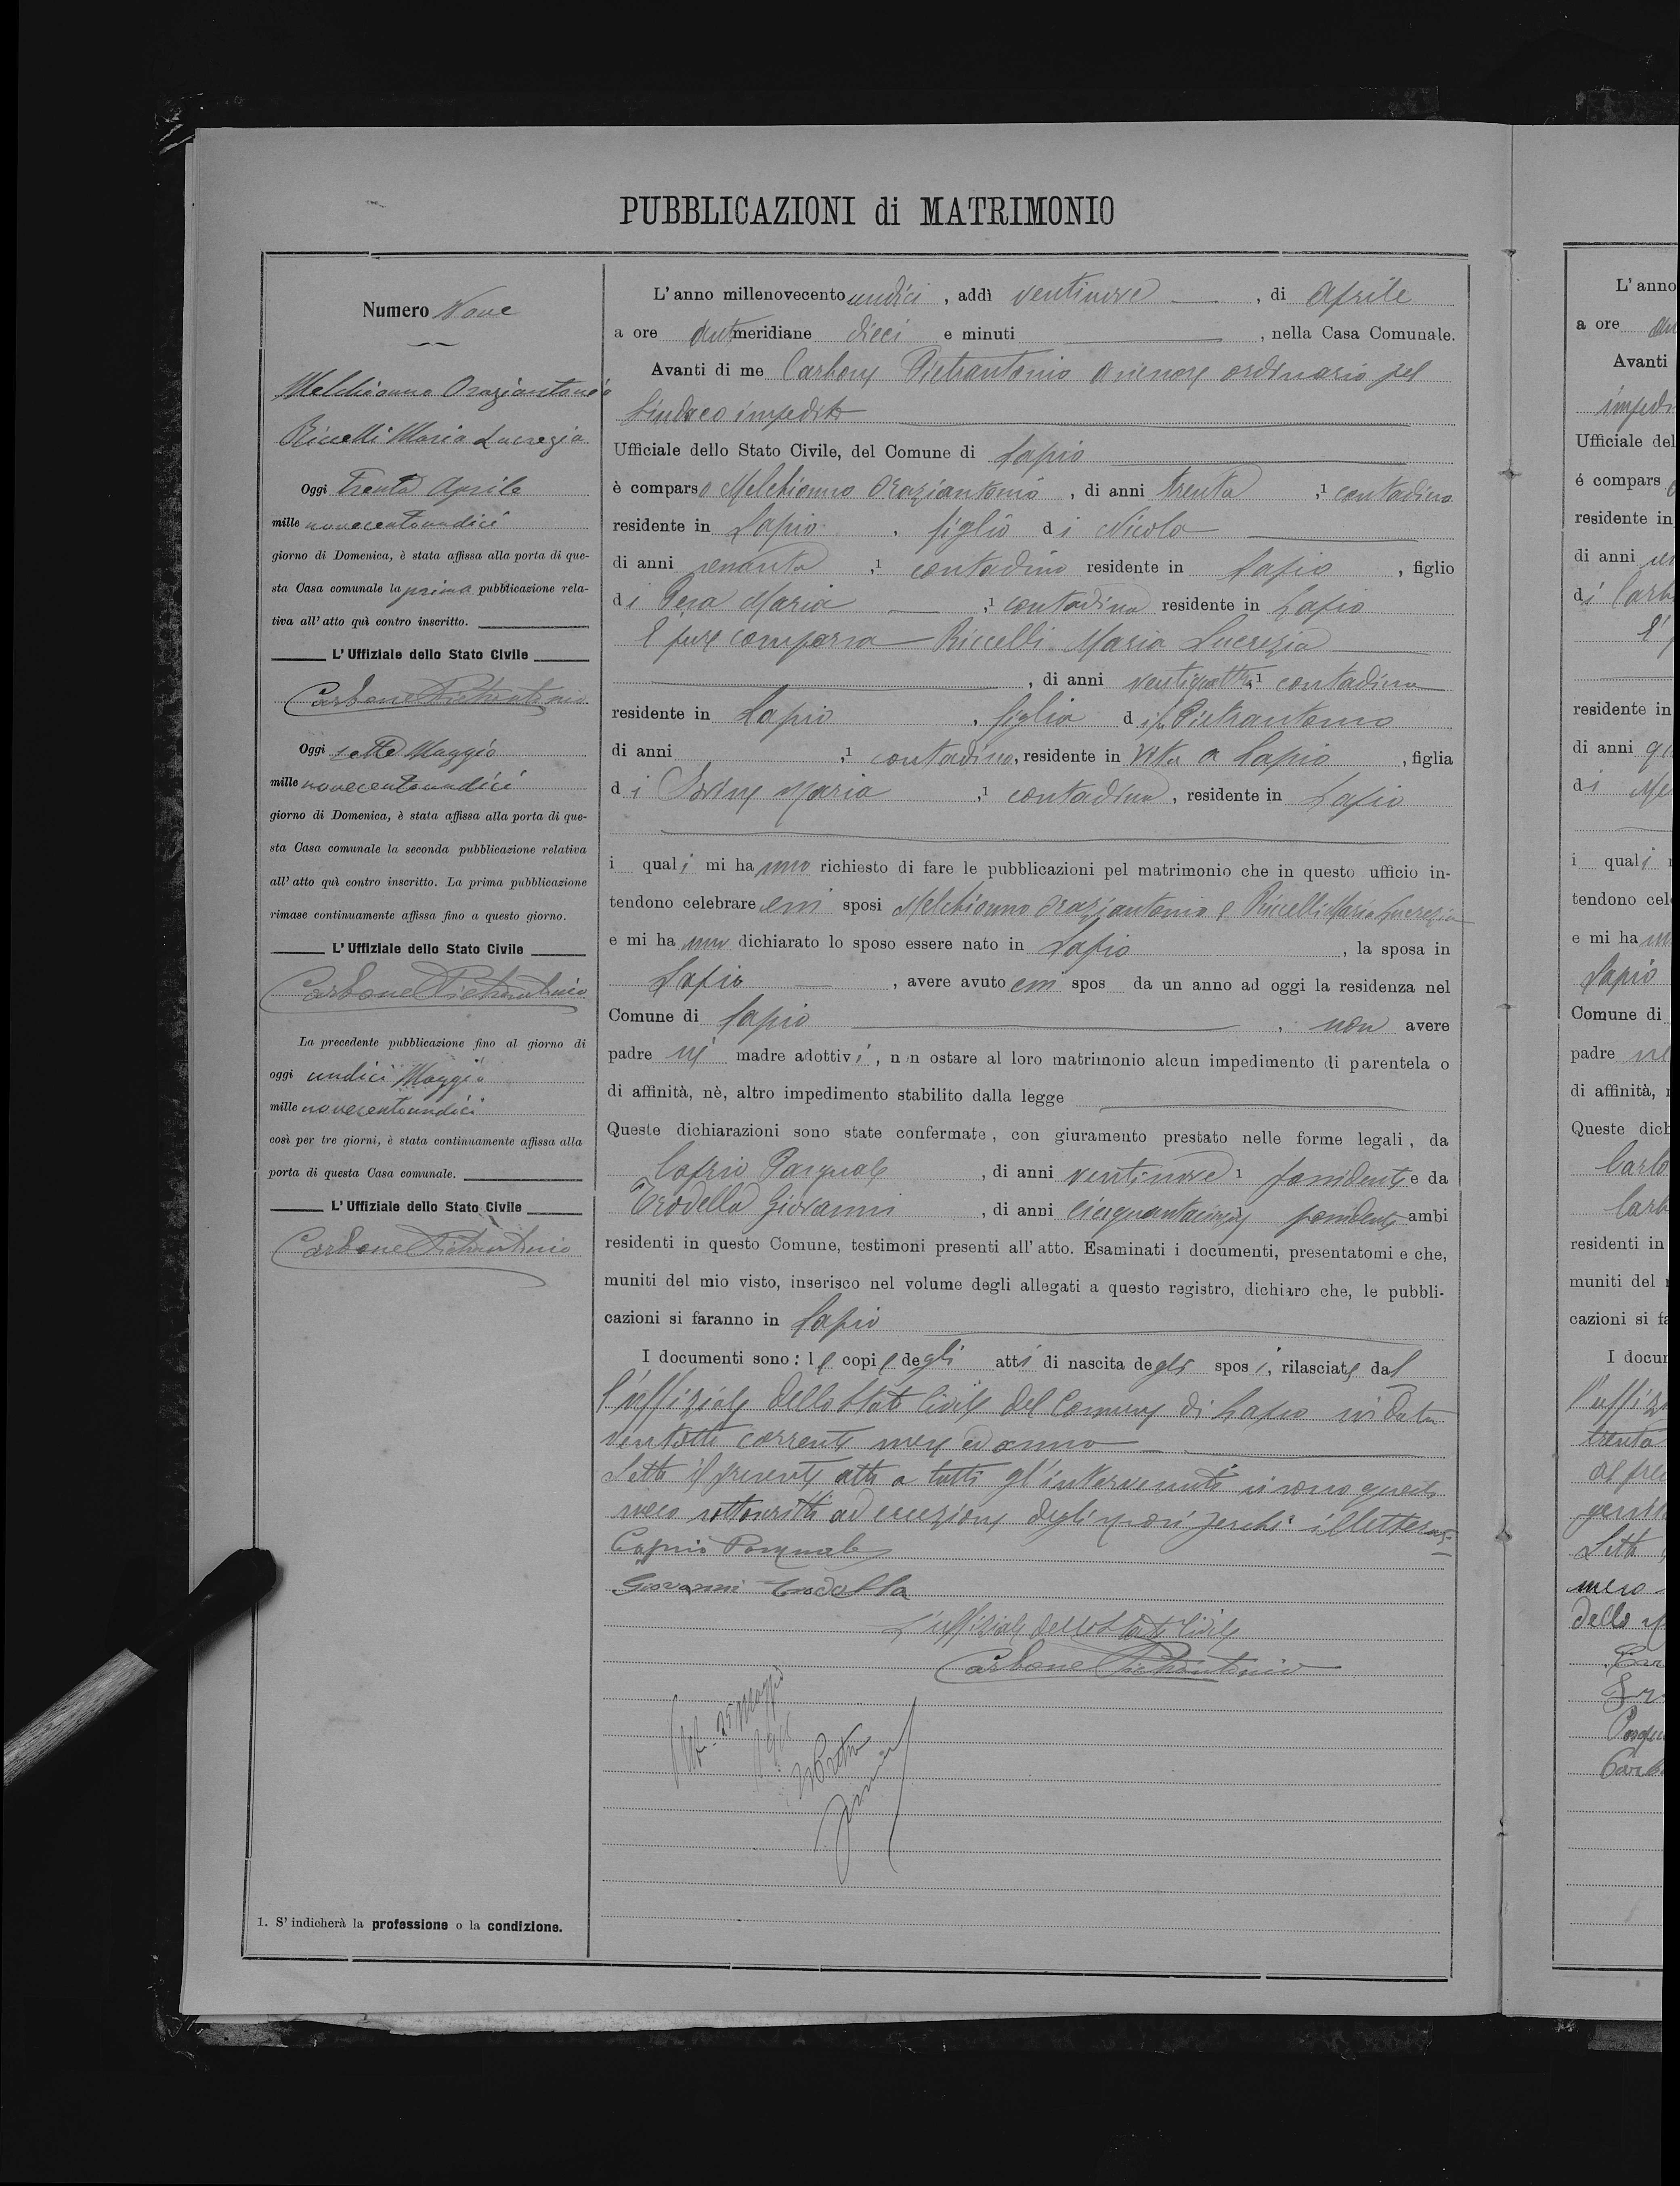 PUBBLICAZIONI di MATRIMONIO
Numero Nove
Melchionno Oraziantonio
Riccelli Maria Lucrezia
Oggi trenta Aprile
mille novecentoundici
giorno di Domenica, è stata affissa alla porta di que-
sta Casa comunale la prima pubblicazione rela-
tiva all' atto quì contro inscritto.
L' Uffiziale dello Stato Civile
Carbone Pietrantonio
Oggi sette Maggio
mille novecentoundici
giorno di Domenica, è stata affissa alla porta di que-
sta Casa comunale la seconda pubblicazione relativa
all' atto quì contro inscritto. La prima pubblicazione
rimase continuamente affissa fino a questo giorno.
L' Uffiziale dello Stato Civile
Carbone Pietrantonio
La precedente pubblicazione fino al giorno di
oggi undici Maggio
mille novecentoundici
così per tre giorni, è stata continuamente affissa alla
porta di questa Casa comunale.
L' Uffiziale dello Stato Civile
Carbone Pietrantonio
1. S' indicherà la professione o la condizione.
L' anno millenovecento undici, addì ventinove, di Aprile
a ore antimeridiane dieci e minuti, nella Casa Comunale.
Avanti di me Carbone Pietrantonio assessore ordinario pel
Sindaco impedito
Ufficiale dello Stato Civile, del Comune di Lapio
è comparso Melchionno Oraziantonio, di anni trenta,1 contadino
residente in Lapio, figlio di Nicola
di anni sessanta,1 contadino residente in Lapio, figlio
di Pesa Maria,1 contadina residente in Lapio
E pure comparsa Riccelli Maria Lucrezia
, di anni ventiquattro,1 contadina
residente in Lapio, figlia di fu Pietrantonio
di anni ,1 contadino, residente in vita a Lapio, figlia
di Maria,1 contadina, residente in Lapio
i quali mi hanno richiesto di fare le pubblicazioni pel matrimonio che in questo ufficio in-
tendono celebrare essi sposi Melchionno Oraziantonio e Riccelli Maria Lucrezia
e mi hanno dichiarato lo sposo essere nato in Lapio, la sposa in
Lapio, avere avuto essi spos da un anno ad oggi la residenza nel
Comune di Lapio, non avere
padre nè madre adottivi, non ostare al loro matrimonio alcun impedimento di parentela o
di affinità, nè, altro impedimento stabilito dalla legge
Queste dichiarazioni sono state confermate, con giuramento prestato nelle forme legali, da
Caprio Pasquale, di anni ventinove 1 possidente e da
Trodella Giovanni, di anni cinquantacinque possidente ambi
residenti in questo Comune, testimoni presenti all' atto. Esaminati i documenti, presentatomi e che,
muniti del mio visto, inserisco nel volume degli allegati a questo registro, dichiaro che, le pubbli-
cazioni si faranno in Lapio
I documenti sono: le copie degli atti di nascita degli sposi, rilasciate dal
l'uffiziale dello Stato Civile del Comune di Lapio in data
ventotto corrente mese ed anno
Letto il presente atto a tutti gl'intervenuti si sono questi
meco sottoscritti ad eccezione degli sposi perchè illetterati
Caprio Pasquale
Giovanni Trodella
L'uffiziale dello Stato Civile
Carbone Pietrantonio
25 Maggio
1911
Il Pretore
L' anno
a ore
Avanti
impedi
Ufficiale del
è compars
residente in
di anni
di Carb
residente in
di anni
di Me
i quali
tendono cel
e mi ha
Lapio
Comune di
padre ne
di affinità,
Queste dich
Carbo
Carb
residenti in
muniti del
cazioni si fa
I docu
l'uffizi
trenta
Letto
meco
dello